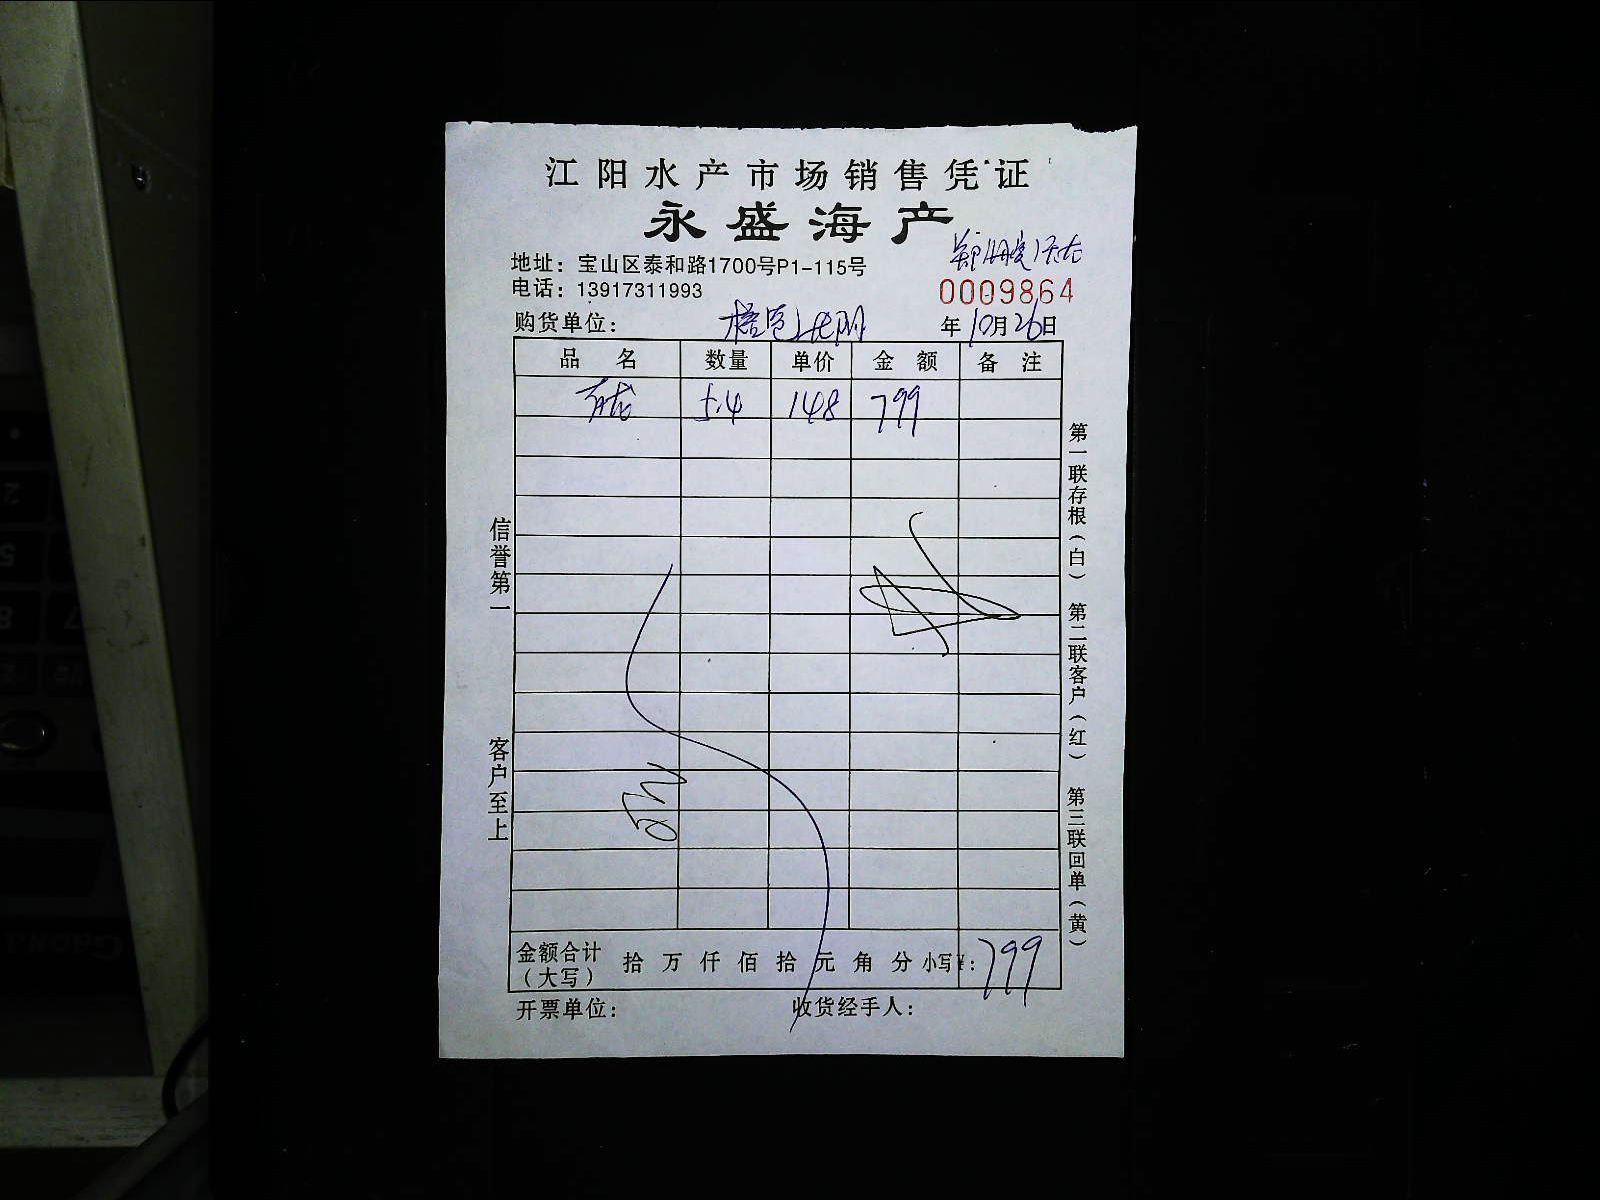 江阳水产市场销售凭证
永盛海产
地址：宝山区泰和路1700号P1-115号
电话：13917311993
0009864
购货单位：
年10月26日
品 名 数量 单价 金 额 备 注
5.4 148 799
信誉第一 客户至上
第一联存根（白） 第二联客户（红） 第三联回单（黄）
金额合计（大写） 拾 万 仟 佰 拾 元 角 分 小写¥：799
开票单位： 收货经手人：